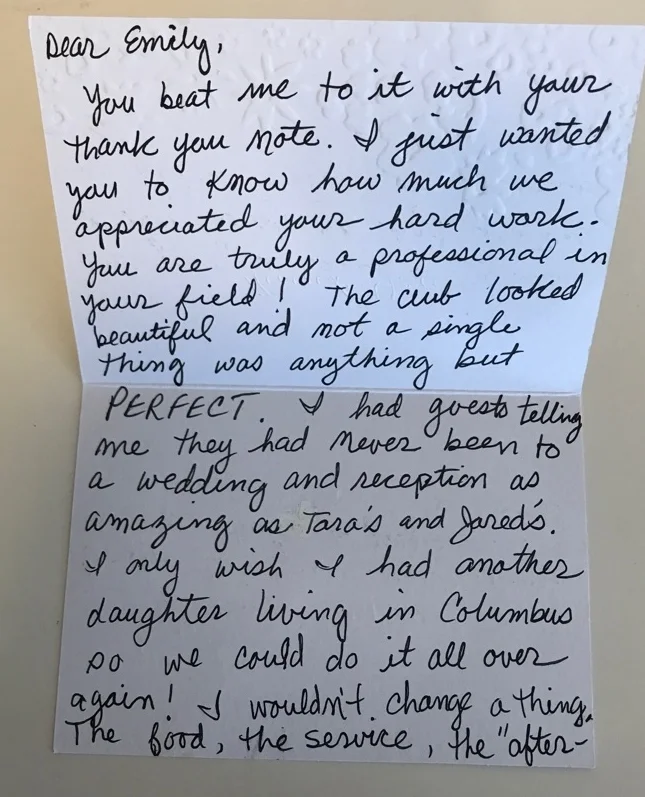 Dear Emily,
You beat me to it with your
thank you note. I just wanted
you to know how much we
appreciated your hard work.
You are truly a professional in
your field! The club looked
beautiful and not a single
thing was anything but
PERFECT. I had guests telling
me they had never been to
a wedding and reception as
amazing as Tara's and Jared's.
I only wish I had another
daughter living in Columbus
so we could do it all over
again! I wouldn't change a thing.
The food, the service, the "after-